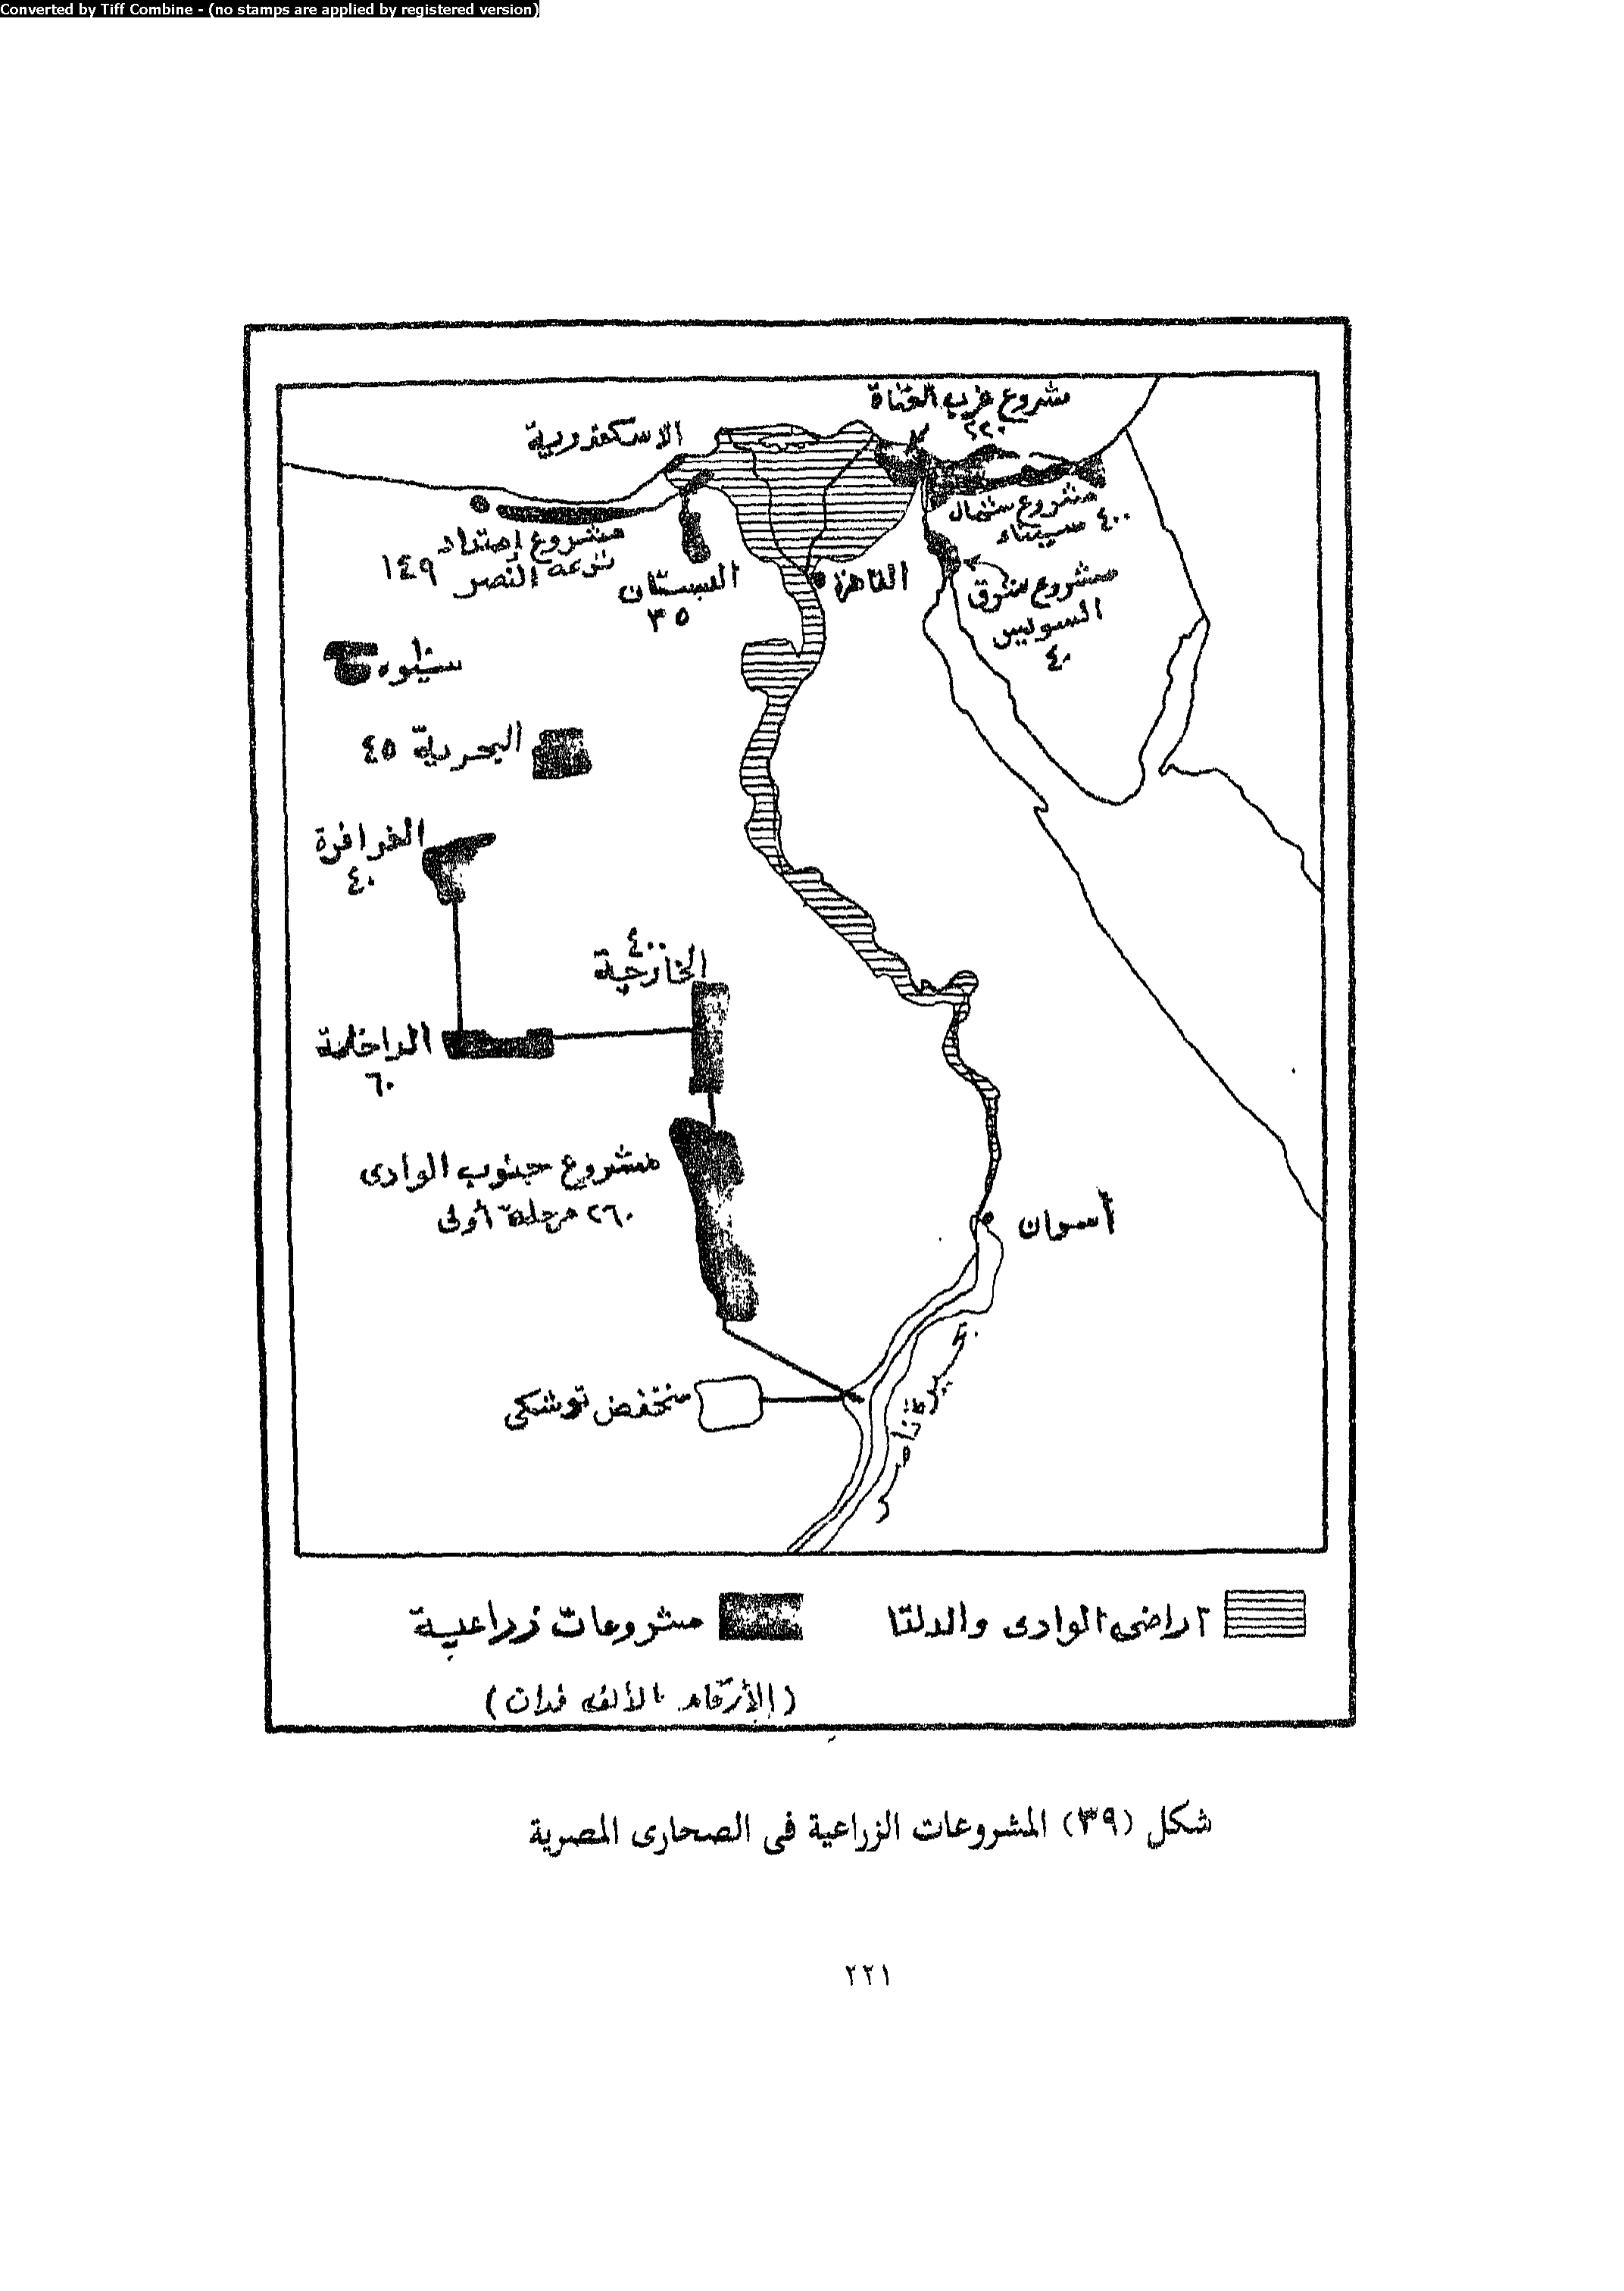 Converted by Tiff Combine - (no stamps are applied by registered version)
مشروع غرب القناة
٢٢٠
الاسكندرية
مشروع شمال
سيناء ٤٠٠
مشروع إمتداد
ترعة النصر ١٤٩
البستان
٣٥
القاهرة
مشروع شرق
السويس
٤٠
سيوه
البحرية ٤٥
الفرافرة
٤٠
٤٠٠
الخارجية
الداخلة
٦٠
مشروع جنوب الوادى
٢٦٠ مرحلة أولى
أسوان
بحيرة ناصر
منخفض توشكى
اراضى الوادى والدلتا
مشروعات زراعية
(الأرقام بالألف فدان)
شكل (٣٩) المشروعات الزراعية فى الصحارى المصرية
٢٢١